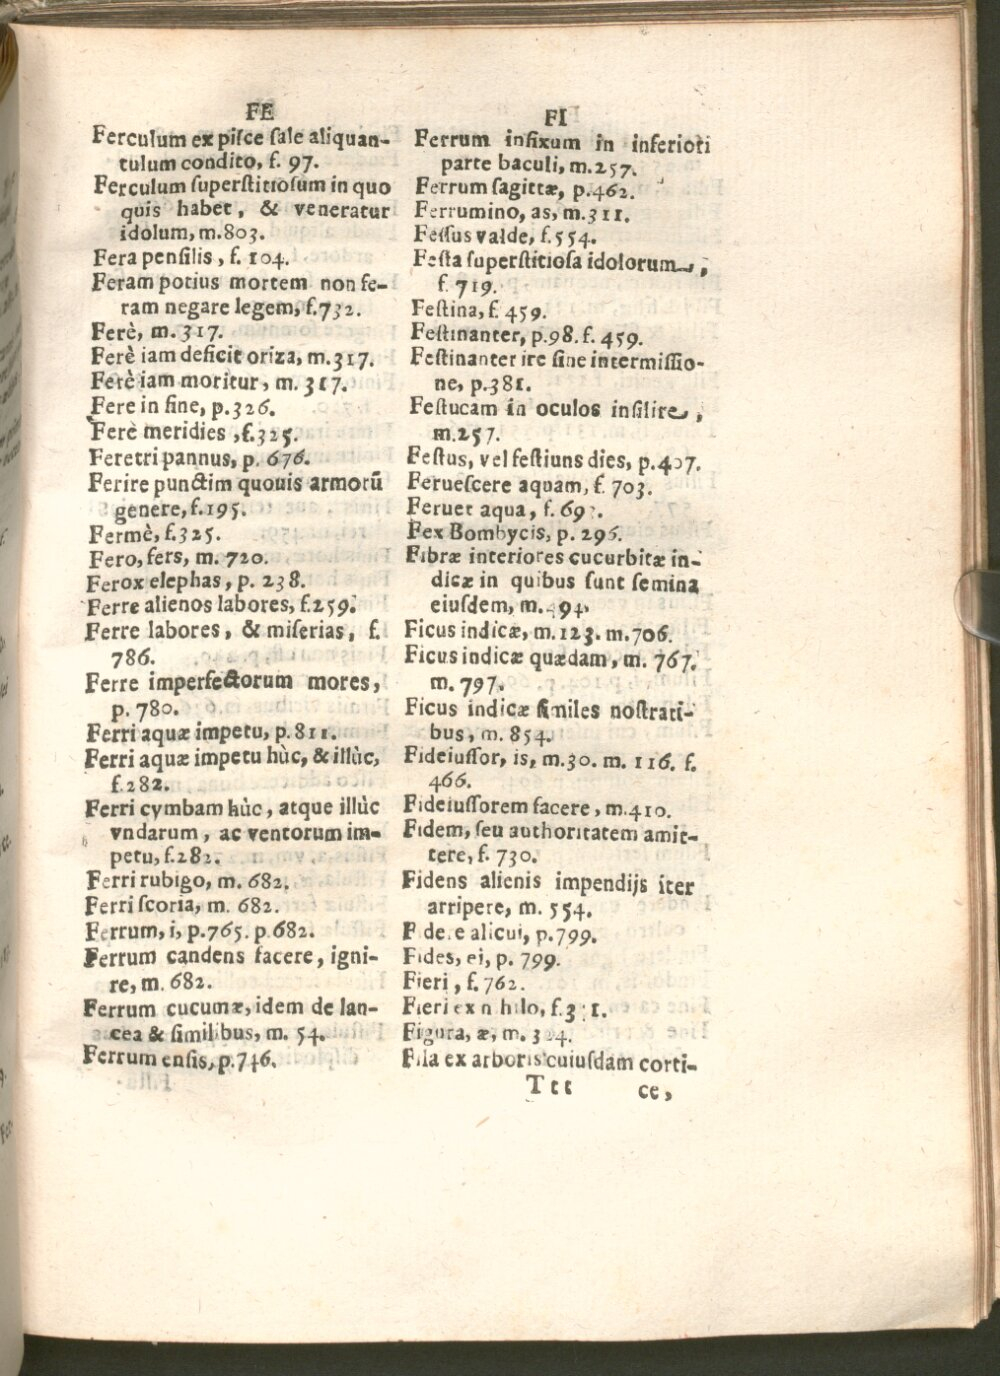 FE
Ferculum ex pisce sale aliquan-
tulum condito, f. 97.
Ferculum superstitiosum in quo
quis habet, & veneratur
idolum, m.803.
Fera pensilis, f. 104.
Feram potius mortem non fe-
ram negare legem, f.732.
Ferè, m. 317.
Ferè iam deficit oriza, m.317.
Ferè iam moritur, m. 317.
Fere in fine, p.326.
Ferè meridies, f.325.
Feretri pannus, p. 676.
Ferire punctim quouis armorũ
genere, f.195.
Fermè, f.325.
Fero, fers, m. 720.
Ferox elephas, p. 238.
Ferre alienos labores, f.259.
Ferre labores, & miserias, f.
786.
Ferre imperfectorum mores,
p. 780.
Ferri aquæ impetu, p.811.
Ferri aquæ impetu hùc, & illùc,
f.282.
Ferri cymbam hùc, atque illùc
vndarum, ac ventorum im-
petu, f.282.
Ferri rubigo, m. 682.
Ferri scoria, m. 682.
Ferrum, i, p.765. p.682.
Ferrum candens facere, igni-
re, m. 682.
Ferrum cucumæ, idem de lan-
cea & similibus, m. 54.
Ferrum ensis, p.746.
FI
Ferrum infixum in inferiori
parte baculi, m.257.
Ferrum sagittæ, p.462.
Ferrumino, as, m.311.
Fessus valde, f.554.
Festa superstitiosa idolorum,
f. 719.
Festina, f. 459.
Festinanter, p.98. f. 459.
Festinanter ire sine intermissio-
ne, p.381.
Festucam in oculos insilire,
m.257.
Festus, vel festiuus dies, p.407.
Feruescere aquam, f. 703.
Feruet aqua, f.
Fex Bombycis, p. 296.
Fibræ interiores cucurbitæ in-
dicæ in quibus sunt semina
eiusdem, m. 494.
Ficus indicæ, m.123. m.706.
Ficus indicæ quædam, m. 767.
m. 797.
Ficus indicæ similes nostrati-
bus, m. 854.
Fideiussor, is, m.30. m. 116. f.
466.
Fideiussorem facere, m.410.
Fidem, seu authoritatem amit-
tere, f. 730.
Fidens alienis impendijs iter
arripere, m. 554.
Fidere alicui, p.799.
Fides, ei, p. 799.
Fieri, f. 762.
Fieri ex nihilo,
Figura, æ, m.
Fila ex arboris cuiusdam corti-
Ttt ce,